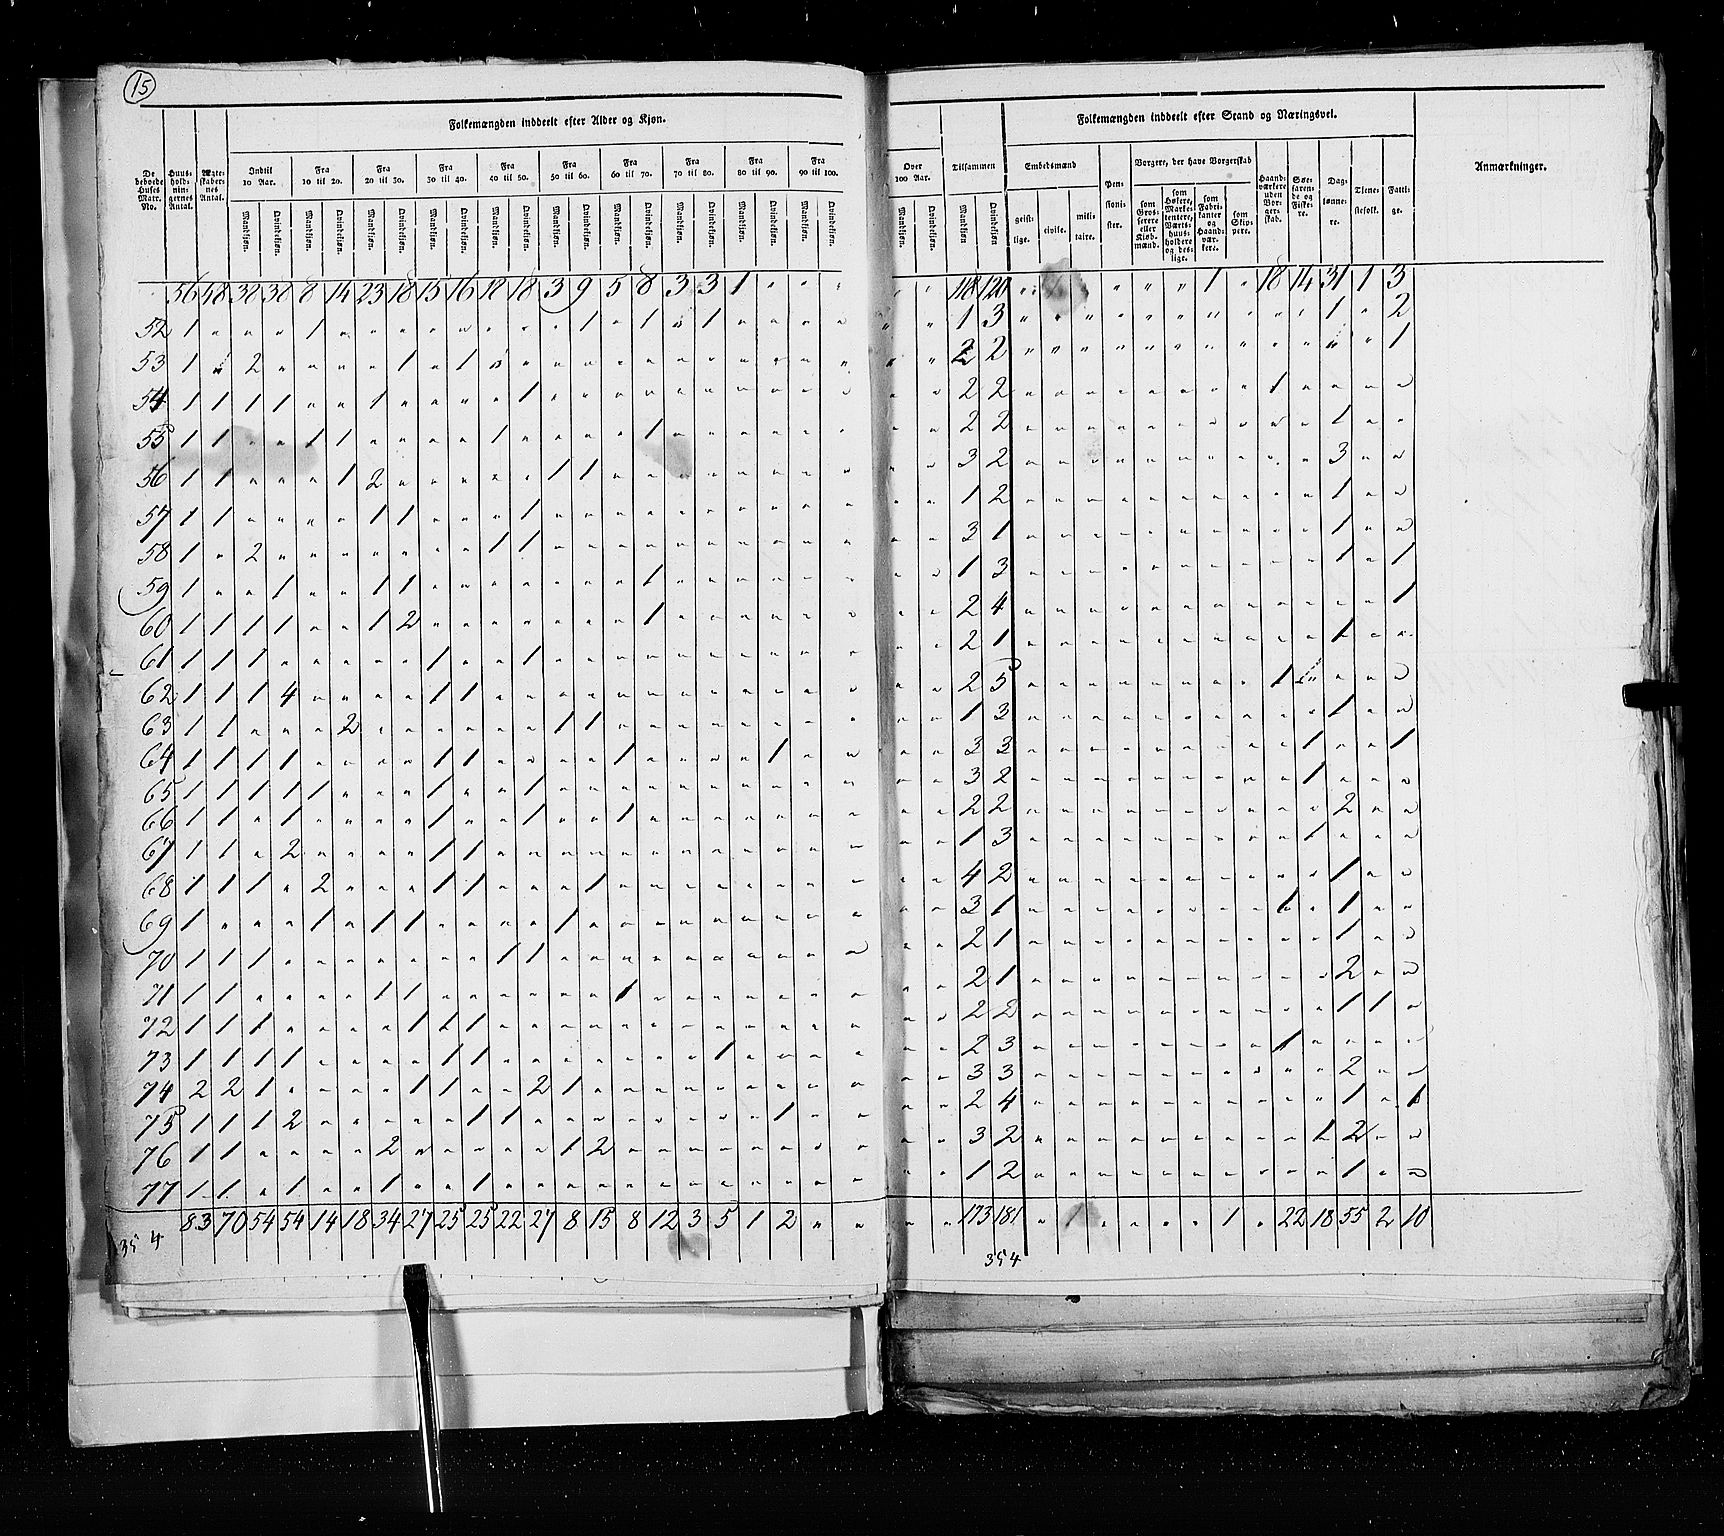 15
Folkemængden inddeelt efter Alder og Kjøn. Folkemængden inddeelt efter Stand og Næringsvei.
De beboede Huses Matr. No. Huus-hold-nin-gernes Antal. Ægte-skaber-nes Antal. Indtil 10 Aar. Fra 10 til 20. Fra 20 til 30. Fra 30 til 40. Fra 40 til 50. Fra 50 til 60. Fra 60 til 70. Fra 70 til 80. Fra 80 til 90. Fra 90 til 100. Over 100 Aar. Tilsammen Embedsmænd Pen-sioni-ster. Borgere, der have Borgerskab Haand-værkere uden Bor-ger-skab. Søe-faren-de og Fiske-re. Dag-lønne-re. Tjene-stefolk. Fatti-ge. Anmærkninger.
Mandkjøn. Qvindekjøn. Mandkjøn. Qvindekjøn. Mandkjøn. Qvindekjøn. Mandkjøn. Qvindekjøn. Mandkjøn. Qvindekjøn. Mandkjøn. Qvindekjøn. Mandkjøn. Qvindekjøn. Mandkjøn. Qvindekjøn. Mandkjøn. Qvindekjøn. Mandkjøn. Qvindekjøn. Mandkjøn. Qvindekjøn. Mandkjøn Qvindekjøn. geist-lige. civile. mili-taire. som Gros-serere eller Kjøb-mænd. som Høkere, Marke-tentere, Værts-huus-holdere og des-lige. som Fabri-kanter og Haand-vær-kere. som Skip-pere.
56 48 38 38 8 14 23 18 15 16 18 18 3 9 5 8 3 3 1 " " " " " 118 120 " " " " " 1 " 18 14 31 1 3
52 1 " " " 1 " " " " " " " " 1 " 1 " 1 " " " " " " 1 3 " " " " " " " " " " 1 " 2
53 1 " 2 " " " " 1 " 1 " " " " " " " " " " " " " " 2 2 " " " " " " " " " " " " 1
54 1 1 1 1 " " 1 " " " " 1 " " " " " " " " " " " " 2 2 " " " " " " " " 1 " " " "
55 1 1 " " 1 1 " " " " 1 " " " " 1 " " " " " " " " 2 2 " " " " " " " " " " 1 " "
56 1 1 " " " 1 2 " " " " " 1 1 " " " " " " " " " " 3 2 " " " " " " " " " " 3 " "
57 1 1 " " " " 1 1 " " " 1 " " " " " " " " " " " " 1 2 " " " " " " " " " " 1 " "
58 1 " 2 " " " " " " " 1 1 " " " " " " " " " " " " 3 1 " " " " " " " " " " 1 " "
59 1 " " 1 " " 1 1 " " " " " " " 1 " " " " " " " " 1 3 " " " " " " " " " " 1 " 1
60 1 1 1 1 " " 1 2 " " " " " " " 1 " " " " " " " " 2 4 " " " " " " " " " " " " 1
61 1 1 1 " " " " " 1 " " 1 " " " " " " " " " " " " 2 1 " " " " " " " " " " 1 " "
62 1 1 1 4 " " " " 1 1 " " " " " " " " " " " " " " 2 5 " " " " " " " " 1 " " " "
63 1 1 " " " 2 " " " " " " 1 1 " " " " " " " " " " 1 3 " " " " " " " " " " 1 " "
64 1 1 1 1 " " " " 1 1 " " " " 1 " " " " 1 " " " " 3 3 " " " " " " " " " 1 " " 1
65 1 1 1 1 1 " " " 1 " " 1 " " " " " " " " " " " " 3 2 " " " " " " " " " 1 " " "
66 1 1 " 1 " " " " 1 " " 1 " " 1 " " " " " " " " " 2 2 " " " " " " " " " " 2 " "
67 1 1 " 2 " " " " 1 1 " " " " " " " " " " " " " " 1 3 " " " " " " " " " 1 " " "
68 1 1 1 " 2 " " " 1 1 " " " 1 " " " " " " " " " " 4 2 " " " " " " " " " " 1 " "
69 1 " " " 1 " 1 1 " " " " 1 " " " " " " " " " " " 3 1 " " " " " " " " 1 " 1 " "
70 1 1 1 " " " " " " " 1 1 " " " " " " " " " " " " 2 1 " " " " " " " " " " 1 " "
71 1 1 " " " " 1 1 " " " " " " 1 " " " " " " " " " 2 1 " " " " " " " " " " 2 " "
72 1 1 1 " " " " 1 1 1 " " " " " " " " " " " " " " 2 2 " " " " " " " " " " 1 1 "
73 1 1 1 1 " " " " 1 1 " " " " " " " 1 " " " " " " 2 3 " " " " " " " " 1 " " " "
74 2 2 1 " " " " 1 1 " " 2 1 " " " " " " " " " " " 3 3 " " " " " " " " " " 2 " "
75 1 1 1 2 " " " " " 1 1 " " " " " " " " 1 " " " " 2 4 " " " " " " " " " " 1 " 1
76 1 1 " " " " 2 " " " " " 1 2 " " " " " " " " " " 3 2 " " " " " " " " " 1 2 " "
77 1 1 " 1 " " 1 " " 1 " " " " " " " " " " " " " " 1 2 " " " " " " " " " " 1 " "
83 70 54 54 14 18 34 27 25 25 22 27 8 15 8 12 3 5 1 2 " " " " 173 181 " 1 " " " " 1 " 22 18 55 2 10
354 354